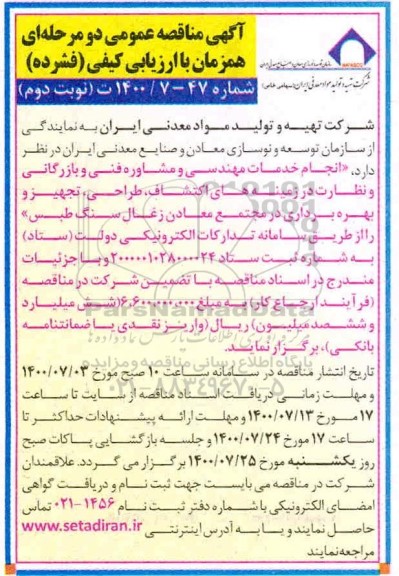 آگهی مناقصه عمومی دو مرحله‌ای
همزمان با ارزیابی کیفی (فشرده)
شماره ۴۷-۱۴۰۰/۷ ت (نوبت دوم)
شرکت تهیه و تولید مواد معدنی ایران (سهامی خاص)
شرکت تهیه و تولید مواد معدنی ایران به نمایندگی
از سازمان توسعه و نوسازی معادن و صنایع معدنی ایران در نظر
دارد، «انجام خدمات مهندسی و مشاوره فنی و بازرگانی
و نظارت در زمینه های اکتشاف، طراحی، تجهیز و
بهره برداری در مجتمع معادن زغال سنگ طبس»
را از طریق سامانه تدارکات الکترونیکی دولت (ستاد)
به شماره ثبت ستاد ۲۰۰۰۰۰۱۰۲۸۰۰۰۰۲۴ و با جزئیات
مندرج در اسناد مناقصه با تضمین شرکت در مناقصه
(فرآیند ارجاع کار) به مبلغ ۶،۶۰۰،۰۰۰،۰۰۰ (شش میلیارد
و ششصد میلیون) ریال (واریز نقدی یا ضمانتنامه
بانکی)، برگزار نماید.
تاریخ انتشار مناقصه در سامانه ساعت ۱۰ صبح مورخ ۱۴۰۰/۰۷/۰۳
و مهلت زمانی دریافت اسناد مناقصه از سایت تا ساعت
۱۷ مورخ ۱۴۰۰/۰۷/۱۳ و مهلت ارائه پیشنهادات حداکثر تا
ساعت ۱۷ مورخ ۱۴۰۰/۰۷/۲۴ و جلسه بازگشایی پاکات صبح
روز یکشنبه مورخ ۱۴۰۰/۰۷/۲۵ برگزار می گردد. علاقمندان
شرکت در مناقصه می بایست جهت ثبت نام و دریافت گواهی
امضای الکترونیکی با شماره دفتر ثبت نام ۱۴۵۶-۰۲۱ تماس
حاصل نمایند و یا به آدرس اینترنتی www.setadiran.ir
مراجعه نمایند
ParsNamadData
پایگاه اطلاع رسانی مناقصه و مزایده
۰۲۱-۸۸۳۴۹۶۷۰-۵